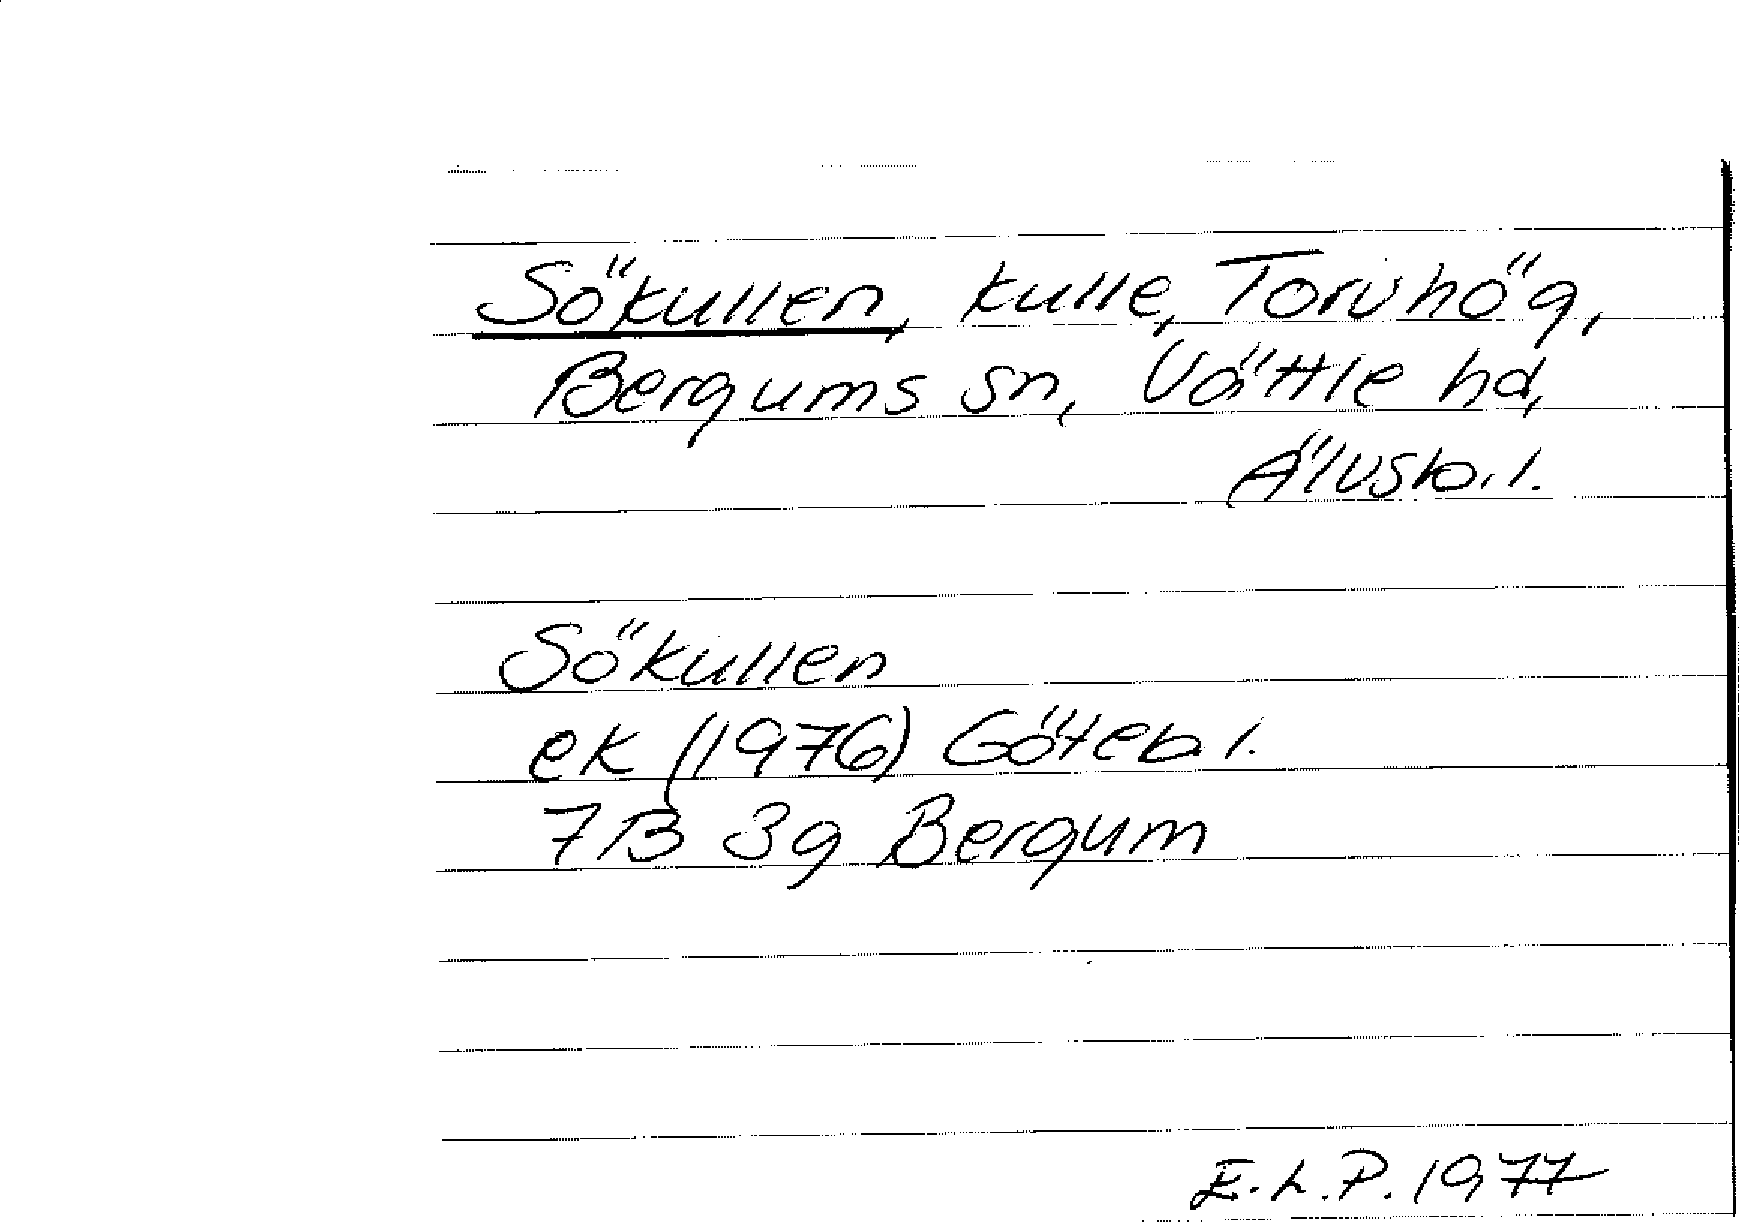 Sökullen, kulle, Torvhög,
Bergums sn, Vättle hd,
Älvsb. l.
Sökullen
ek (1976) Göteb l.
7B 3g Bergum
E.L.P. 1977